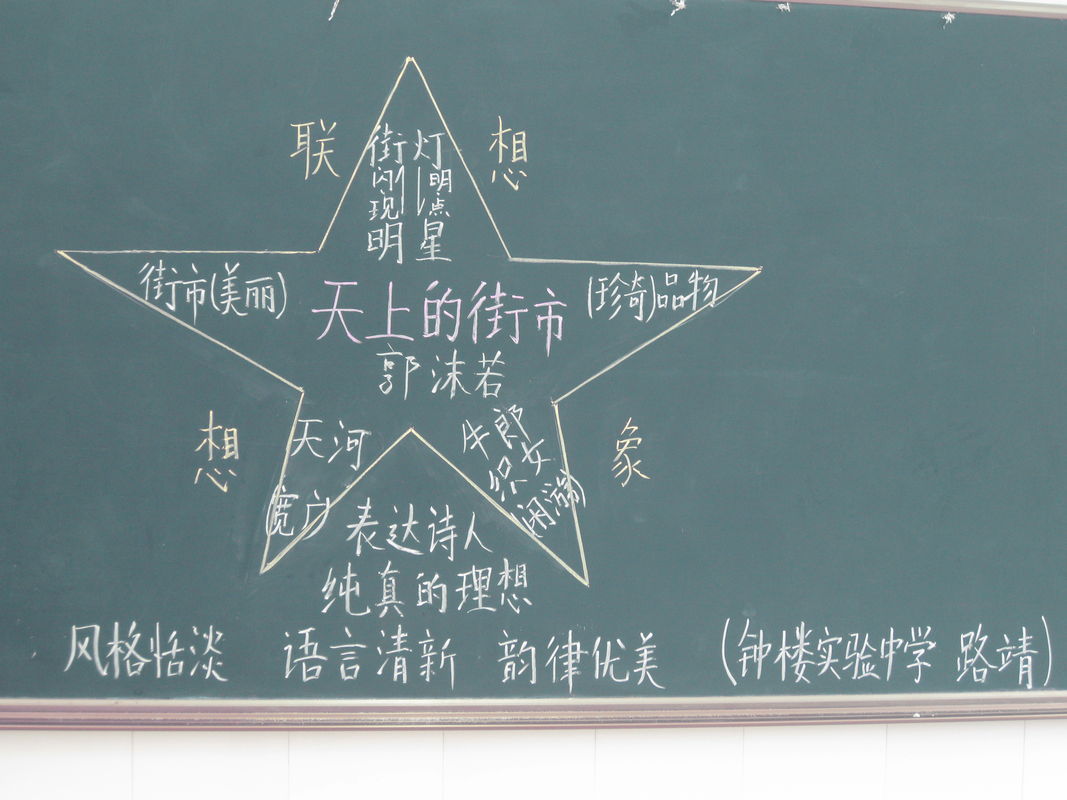 联 想
街灯
闪 明
现 点
明星
街市(美丽) (珍奇)品物
天上的街市
郭沫若
想 象
天河
(宽广)
牛郎
织女
(闲游)
表达诗人
纯真的理想
风格恬淡 语言清新 韵律优美 (钟楼实验中学 路靖)